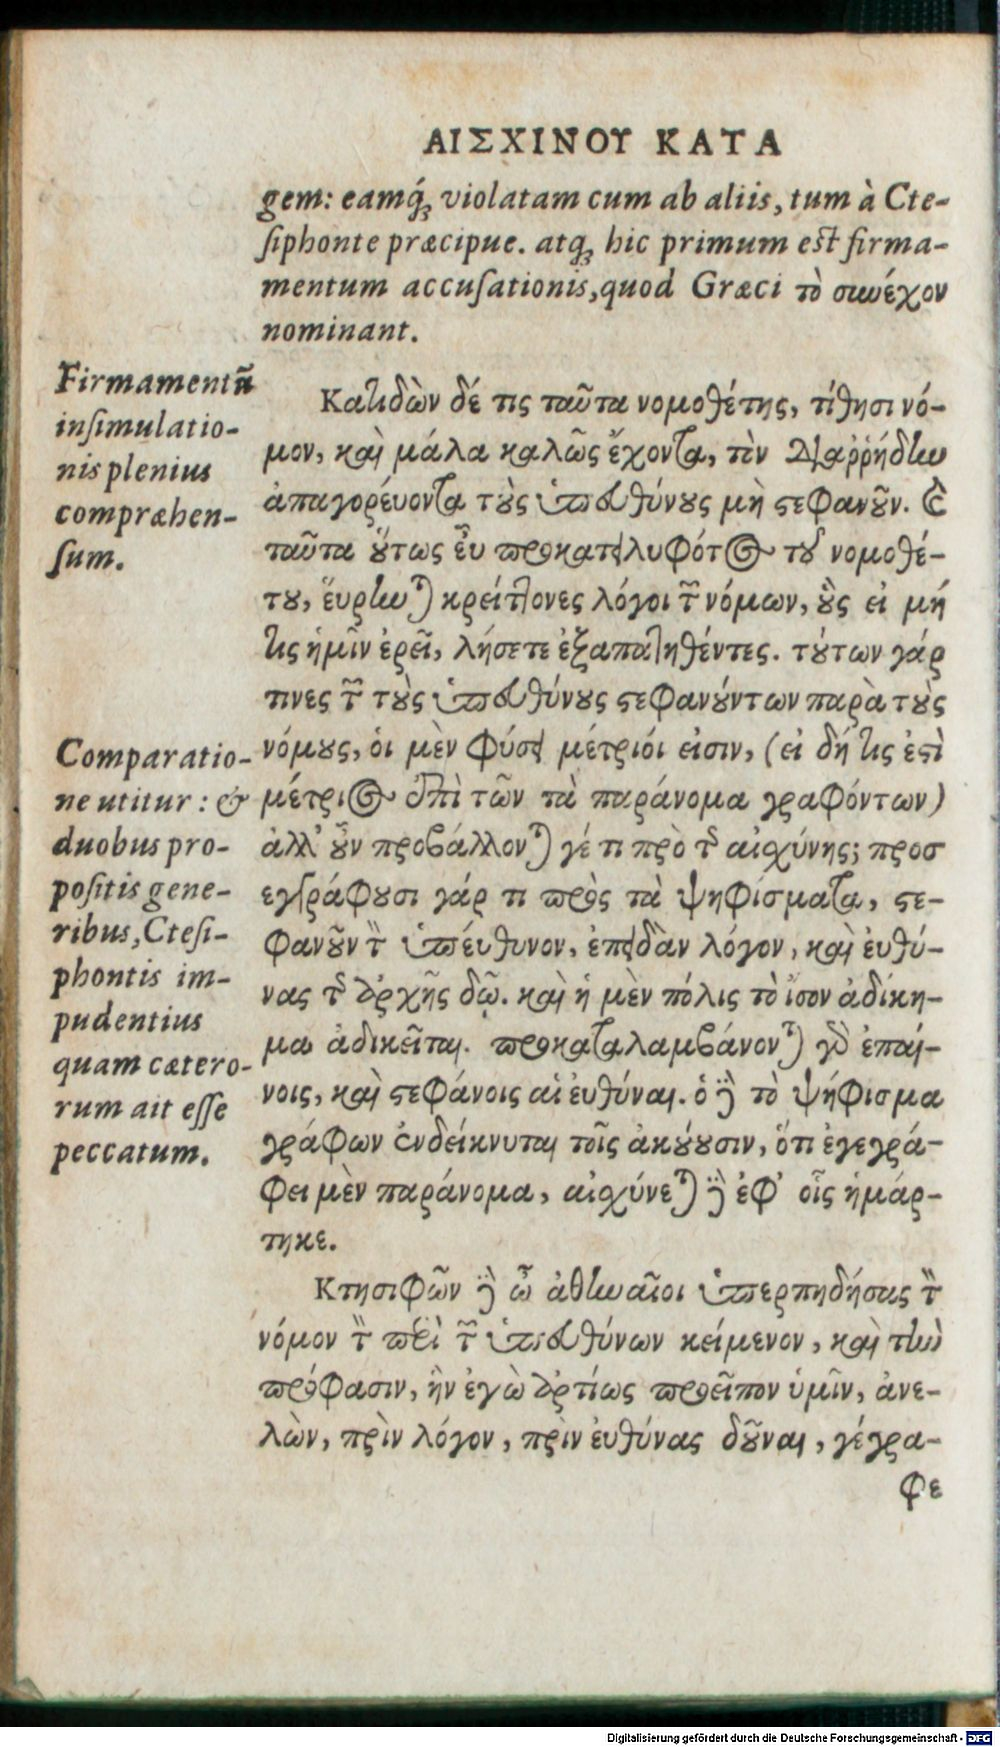 ΑΙΣΧΙΝΟΥ ΚΑΤΑ
gem: eamq́; violatam cum ab aliis, tum à Cte-
ſiphonte præcipue. atq; hic primum eſt firma-
mentum accuſationis, quod Græci τὸ συνέχον
nominant.
Firmamentũ
inſimulatio-
nis plenius
compræhen-
ſum.
Κατιδὼν δέ τις ταῦτα νομοθέτης, τίθησι νό-
μον, καὶ μάλα καλῶς ἔχοντα, τὸν διαῤῥήδην
ἀπαγορέυοντα τοὺς ὑπευθύνους μὴ στεφανοῦν. καὶ
ταῦτα οὕτως εὖ προκατειλυφότος τοῦ νομοθέ-
του, ἕυρηνται κρείττονες λόγοι τῶν νόμων, οὓς εἰ μή
τις ἡμῖν ἐρεῖ, λήσετε ἐξαπατηθέντες. τούτων γάρ
τινες τῶν τοὺς ὑπευθύνους στεφανούντων παρὰ τοὺς
νόμους, ὁι μὲν φύσει μέτριόι εἰσιν, (εἰ δή τις ἐστὶ
μέτριος ἐπὶ τῶν τὰ παράνομα γραφόντων)
ἀλλ᾽ οὖν προβάλλονται γέ τι πρὸ τῆς αἰσχύνης; προσ
εγγράφουσι γάρ τι πρὸς τὰ ψηφίσματα, στε-
φανοῦν τὸν ὑπέυθυνον, ἐπειδὰν λόγον, καὶ ἐυθύ-
νας τῆς ἀρχῆς δῷ. καὶ ἡ μὲν πόλις τὸ ἴσον ἀδίκη-
μα ἀδικεῖται. προκαταλαμβάνονται γὰρ ἐπαί-
νοις, καὶ στεφάνοις αἱ ἐυθύναι. ὁ δὲ τὸ ψήφισμα
γράφων ἐνδείκνυται τοῖς ἀκούουσιν, ὅτι ἐγεγρά-
φει μὲν παράνομα, αἰσχύνεται δὲ ἐφ᾽ οἷς ἡμάρ-
τηκε.
Comparatio-
ne utitur: &
duobus pro-
poſitis gene-
ribus, Cteſi-
phontis im-
pudentius
quam cætero-
rum ait eſſe
peccatum.
Κτησιφῶν δὲ ὦ ἀθηναῖοι ὑπερπηδήσας τὸν
νόμον τὸν περὶ τῶν ὑπευθύνων κείμενον, καὶ τὴν
πρόφασιν, ἣν ἐγὼ ἀρτίως προεῖπον ὑμῖν, ἀνε-
λὼν, πρὶν λόγον, πρὶν ἐυθύνας δοῦναι, γέγρα-
φε
Digitalisierung gefördert durch die Deutsche Forschungsgemeinschaft - DFG